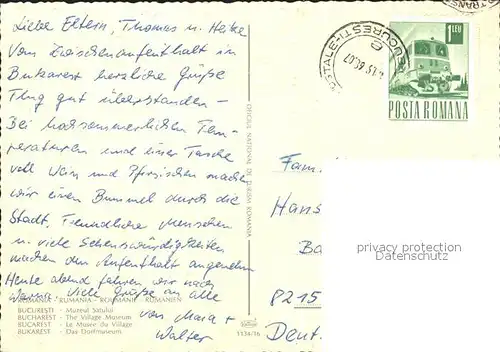 Liebe Eltern, Thomas u. Heike
Vom Zwischenaufenthalt in
Bukarest herzliche Grüße
Flug gut überstanden –
Bei hochsommerlichen Tem-
peraturen und einer Tasche
voll Wein und Pfirsichen machen
wir einen Bummel durch die
Stadt. Freundliche Menschen
u. viele Sehenswürdigkeiten
machen den Aufenthalt angenehm
Heute abend fahren wir nach
Viele Grüße an alle
von Mara +
Walter
ROUMANIE - RUMÄNIEN
BUCUREŞTI - Muzeul Satului
BUCHAREST - The Village Museum
BUCAREST - Le Musée du Village
BUKAREST - Das Dorfmuseum
OFICIUL NAŢIONAL DE TURISM ROMANIA
1 LEU
POSTA ROMANA
Fam.
Hans
Ba
8215
Deut
privacy protection
www.oldthing.de